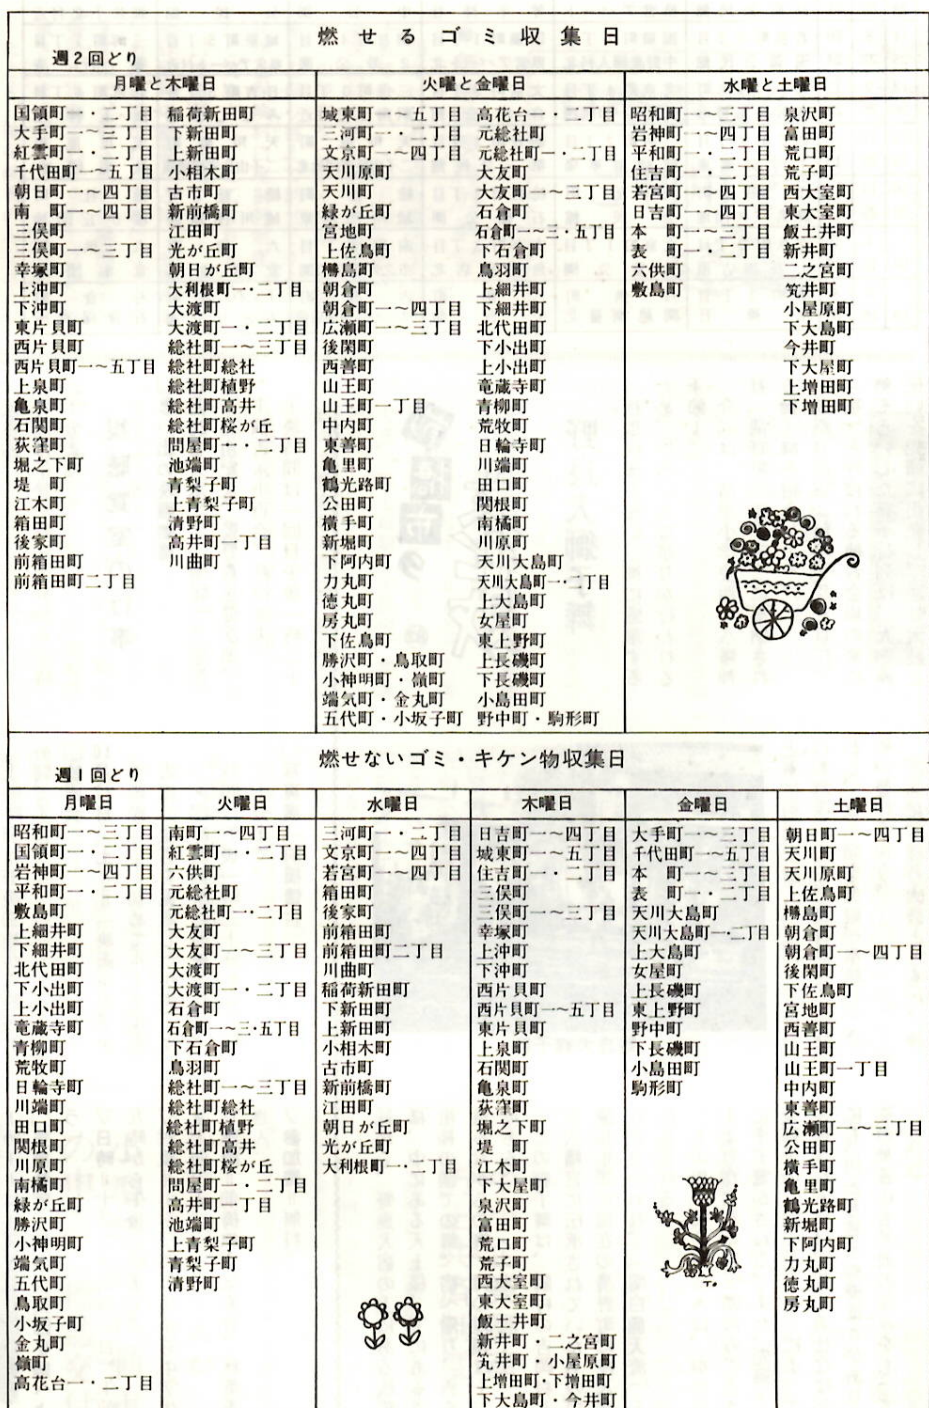 燃せるゴミ収集日
週2回どり
月曜と木曜日
国領町一・二丁目
大手町一〜三丁目
紅雲町一・二丁目
千代田町一〜五丁目
朝日町一〜四丁目
南　町一〜四丁目
三俣町
三俣町一〜三丁目
幸塚町
上沖町
下沖町
東片貝町
西片貝町
西片貝町一〜五丁目
上泉町
亀泉町
石関町
荻窪町
堀之下町
堤　町
江木町
箱田町
後家町
前箱田町
前箱田町二丁目
稲荷新田町
下新田町
上新田町
小相木町
古市町
新前橋町
江田町
光が丘町
朝日が丘町
大利根町一・二丁目
大渡町
大渡町一・二丁目
総社町一〜三丁目
総社町総社
総社町植野
総社町高井
総社町桜が丘
問屋町一・二丁目
池端町
青梨子町
上青梨子町
清野町
高井町一丁目
川曲町
火曜と金曜日
城東町一〜五丁目
三河町一・二丁目
文京町一〜四丁目
天川原町
天川町
緑が丘町
宮地町
上佐鳥町
橳島町
朝倉町
朝倉町一〜四丁目
広瀬町一〜三丁目
後閑町
西善町
山王町
山王町一丁目
中内町
東善町
亀里町
鶴光路町
公田町
横手町
新堀町
下阿内町
力丸町
徳丸町
房丸町
下佐鳥町
勝沢町・鳥取町
小神明町・嶺町
端気町・金丸町
五代町・小坂子町
高花台一・二丁目
元総社町
元総社町一・二丁目
大友町
大友町一〜三丁目
石倉町
石倉町一〜三・五丁目
下石倉町
鳥羽町
上細井町
下細井町
北代田町
下小出町
上小出町
竜蔵寺町
青柳町
荒牧町
日輪寺町
川端町
田口町
関根町
南橘町
川原町
天川大島町
天川大島町一・二丁目
上大島町
女屋町
東上野町
上長磯町
下長磯町
小島田町
野中町・駒形町
水曜と土曜日
昭和町一〜三丁目
岩神町一〜四丁目
平和町一・二丁目
住吉町一・二丁目
若宮町一〜四丁目
日吉町一〜四丁目
本　町一〜三丁目
表　町一・二丁目
六供町
敷島町
泉沢町
富田町
荒口町
荒子町
西大室町
東大室町
飯土井町
新井町
二之宮町
筑井町
小屋原町
下大島町
今井町
下大屋町
上増田町
下増田町
燃せないゴミ・キケン物収集日
週1回どり
月曜日
昭和町一〜三丁目
国領町一・二丁目
岩神町一〜四丁目
平和町一・二丁目
敷島町
上細井町
下細井町
北代田町
下小出町
上小出町
竜蔵寺町
青柳町
荒牧町
日輪寺町
川端町
田口町
関根町
川原町
南橘町
緑が丘町
勝沢町
小神明町
端気町
五代町
鳥取町
小坂子町
金丸町
嶺町
高花台一・二丁目
火曜日
南町一〜四丁目
紅雲町一・二丁目
六供町
元総社町
元総社町一・二丁目
大友町
大友町一〜三丁目
大渡町
大渡町一・二丁目
石倉町
石倉町一〜三・五丁目
下石倉町
鳥羽町
総社町一〜三丁目
総社町総社
総社町植野
総社町高井
総社町桜が丘
問屋町一・二丁目
高井町一丁目
池端町
上青梨子町
青梨子町
清野町
水曜日
三河町一・二丁目
文京町一〜四丁目
若宮町一〜四丁目
箱田町
後家町
前箱田町
前箱田町二丁目
川曲町
稲荷新田町
下新田町
上新田町
小相木町
古市町
新前橋町
江田町
朝日が丘町
光が丘町
大利根町一・二丁目
木曜日
日吉町一〜四丁目
城東町一〜五丁目
住吉町一・二丁目
三俣町
三俣町一〜三丁目
幸塚町
上沖町
下沖町
西片貝町
西片貝町一〜五丁目
東片貝町
上泉町
石関町
亀泉町
荻窪町
堀之下町
堤　町
江木町
下大屋町
泉沢町
富田町
荒口町
荒子町
西大室町
東大室町
飯土井町
新井町・二之宮町
筑井町・小屋原町
上増田町・下増田町
下大島町・今井町
金曜日
大手町一〜三丁目
千代田町一〜五丁目
本　町一〜三丁目
表　町一・二丁目
天川大島町
天川大島町一・二丁目
上大島町
女屋町
上長磯町
東上野町
野中町
下長磯町
小島田町
駒形町
土曜日
朝日町一〜四丁目
天川町
天川原町
上佐鳥町
橳島町
朝倉町
朝倉町一〜四丁目
後閑町
下佐鳥町
宮地町
西善町
山王町
山王町一丁目
中内町
東善町
広瀬町一〜三丁目
公田町
横手町
亀里町
鶴光路町
新堀町
下阿内町
力丸町
徳丸町
房丸町